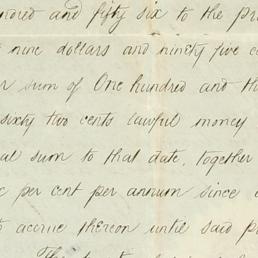 ndred and fifty six to the pr
nine dollars and ninety five c
r sum of One hundred and th
sixty two cents lawful money
al sum to that date, together
per cent per annum since
to accrue thereon until said p